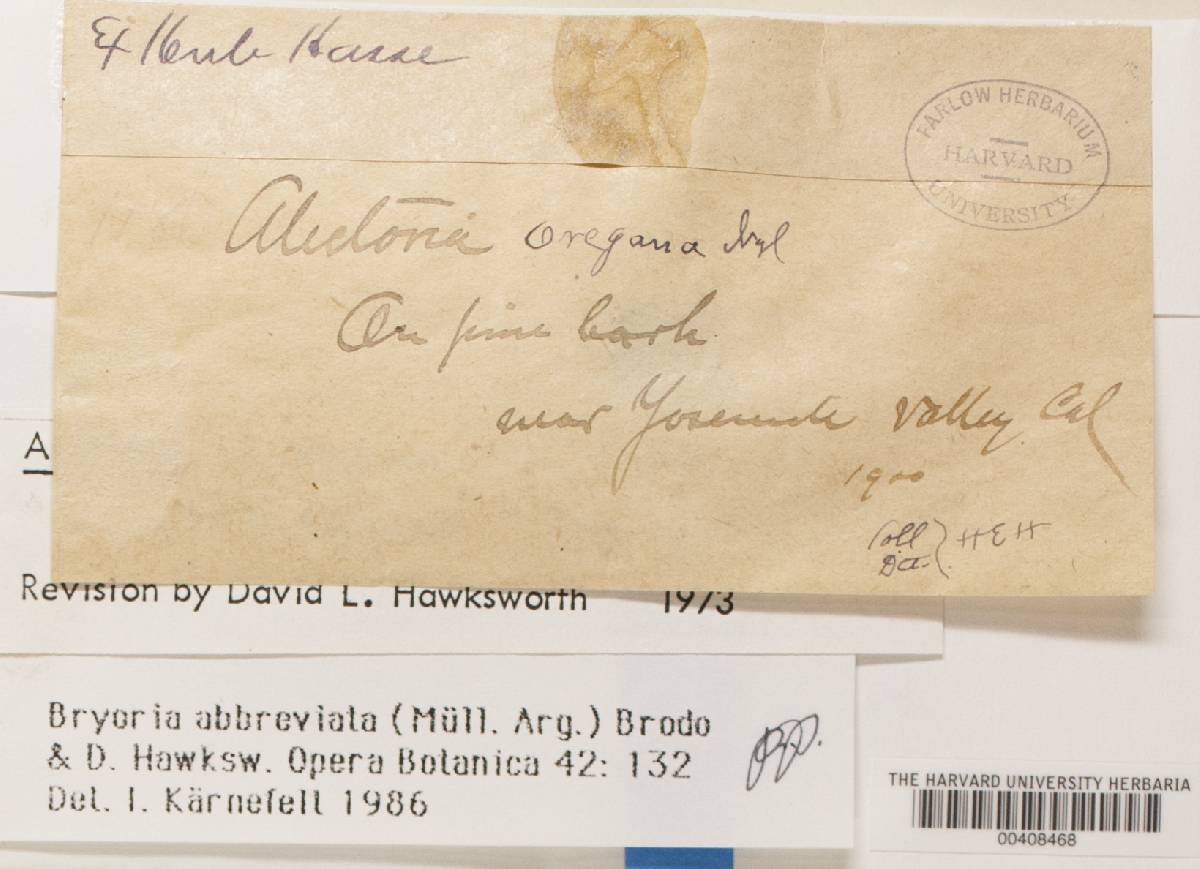 Ex Herb Hasse
FARLOW HERBARIUM
HARVARD
UNIVERSITY
Alectoria oregana Nyl
On pine bark
near Yosemite Valley Cal
1900
Coll
Det } HEH
A
Revision by David L. Hawksworth 1973
Bryoria abbreviata (Müll. Arg.) Brodo
& D. Hawksw. Opera Botanica 42: 132
Det. I. Kärnefelt 1986
THE HARVARD UNIVERSITY HERBARIA
00408468